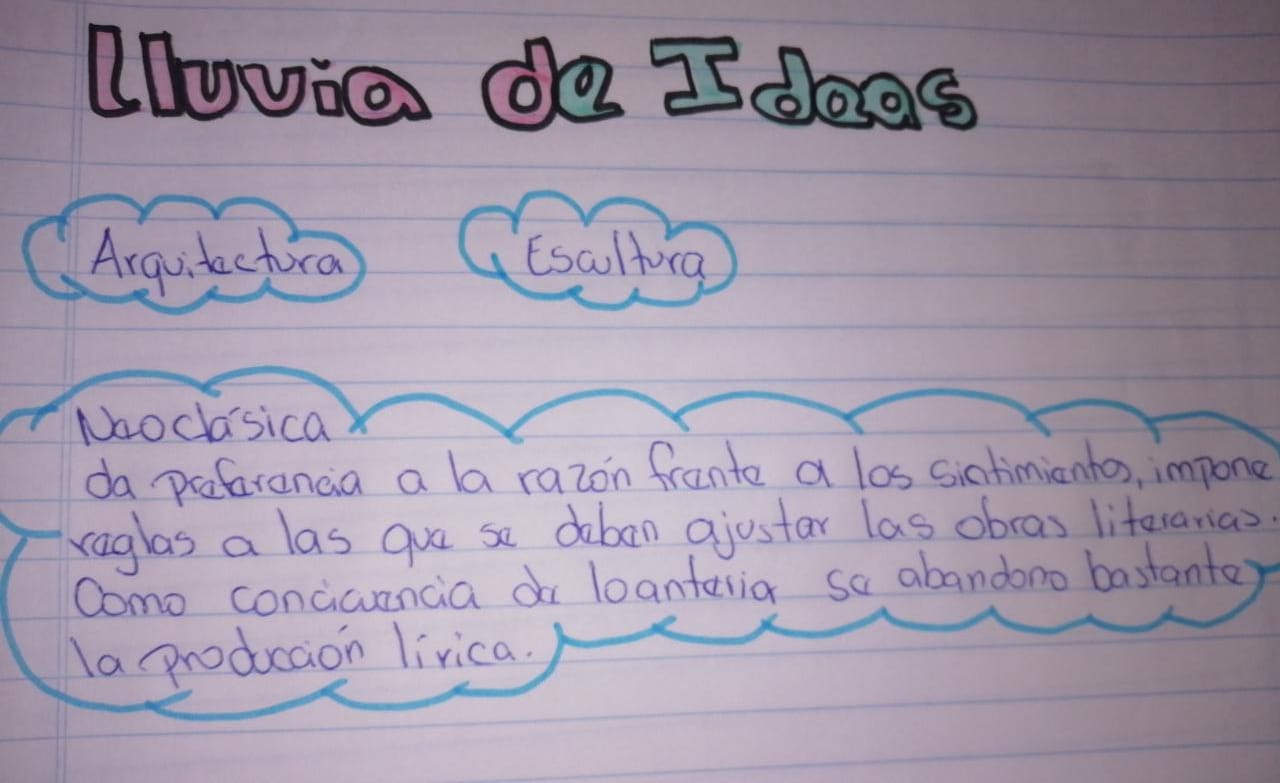 Lluvia de Ideas
Arquitectura
Escultura
Neoclásica
da preferencia a la razón frente a los sietimientos, impone
reglas a las que se deben ajustar las obras literarias.
Como conciciencia de loanterior se abandono bastante
la producción lírica.